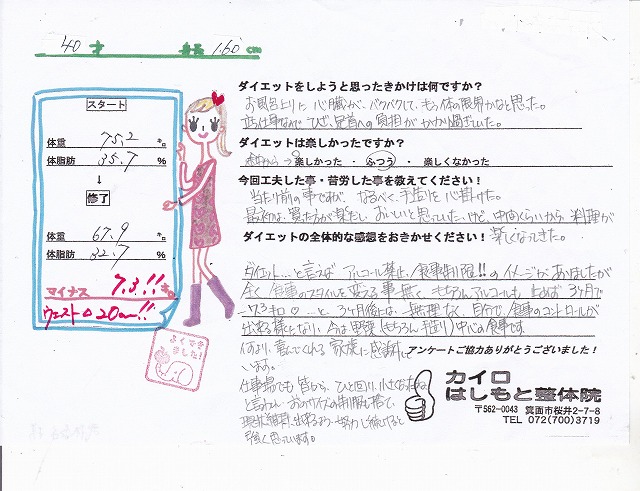 40才 身長 160cm
スタート
体重 75.2 キロ
体脂肪 35.7 %
↓
修了
体重 67.9 キロ
体脂肪 32.7 %
マイナス 7.3!! キロ
ウエスト 20cm!!
よくできました!
ダイエットをしようと思ったきかけは何ですか?
お風呂上りに心臓が、バクバクして、もう体の限界かなと思った。
立仕事なので ひざ、足首への負担がかかり過ぎていた。
ダイエットは楽しかったですか?
途中から→楽しかった・ふつう・楽しくなかった
今回工夫した事・苦労した事を教えてください!
当たり前の事ですが、なるべく手造りを心掛けた。
最初は、買った方が楽だし、おいしいと思っていた、けど、中間くらいから 料理が
楽しくなってきた。
ダイエットの全体的な感想をおきかせください!
ダイエット…と言えば アルコール禁止、食事制限!!のイメージがありましたが
全く 食事のスタイルを変える事無く もちろんアルコールも 3ヶ月で
-7.3キロ♡ …と、3ヶ月後は…無理なく、自分で、食事のコントロールが
出来る様になり、今は野菜(もちろん手造り)中心の食事です。
何より、喜んでくれる 家族に感謝して
います。
仕事場でも 皆から、ひと回り小さくなったね
と言われ、
現状維持出来るよう、努力し続けると
強く思っています。
アンケートご協力ありがとうございました!
カイロ
はしもと整体院
〒562-0043 箕面市桜井2-7-8
TEL 072(700)3719